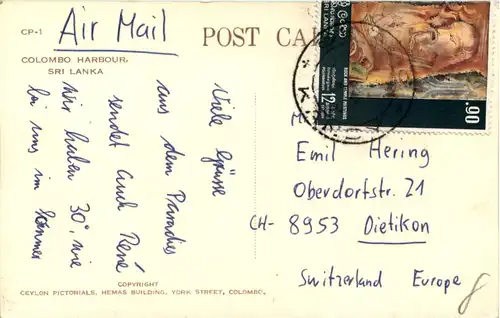 CP-1
Air Mail
POST CA
COLOMBO HARBOUR,
SRI LANKA
SRI LANKA
ROCK AND TEMPLE PAINTINGS
12
.90
Viele Grüsse
aus dem Paradies
sendet Euch René
Wir haben 30°, wie
bei uns im Sommer
Emil Hering
Oberdorfstr. 21
CH- 8953 Dietikon
Switzerland Europe
COPYRIGHT
CEYLON PICTORIALS, HEMAS BUILDING, YORK STREET, COLOMBO,